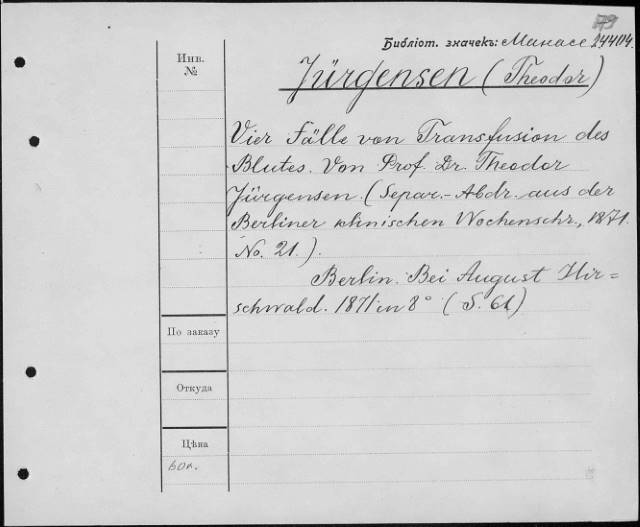 79
Библіот. значекъ: Манасе 24404.
Инв.
№
Jürgensen (Theodor)
Vier Fälle von Transfusion des
Blutes. Von Prof. Dr. Theodor
Jürgensen. (Separ.-Abdr. aus der
Berliner klinischen Wochenschr., 1871.
No. 21.).
Berlin. Bei August Hir=
schwald. 1871 in 8° (S. 61)
По заказу
Откуда
Цѣна
60к.